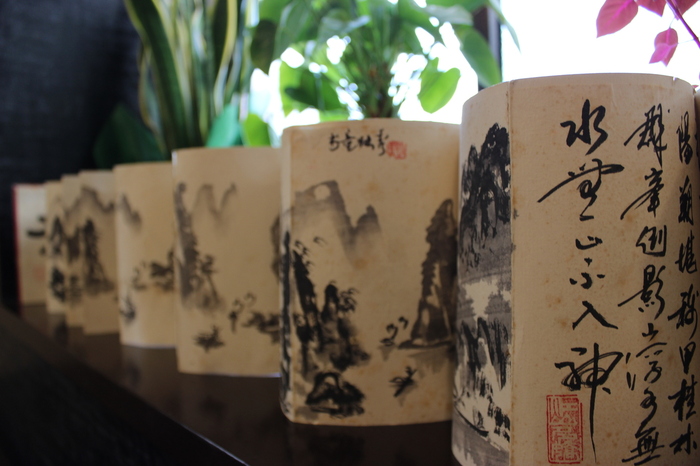 陽朔堪称甲桂林
群峰倒影山浮水無
水無山不入神